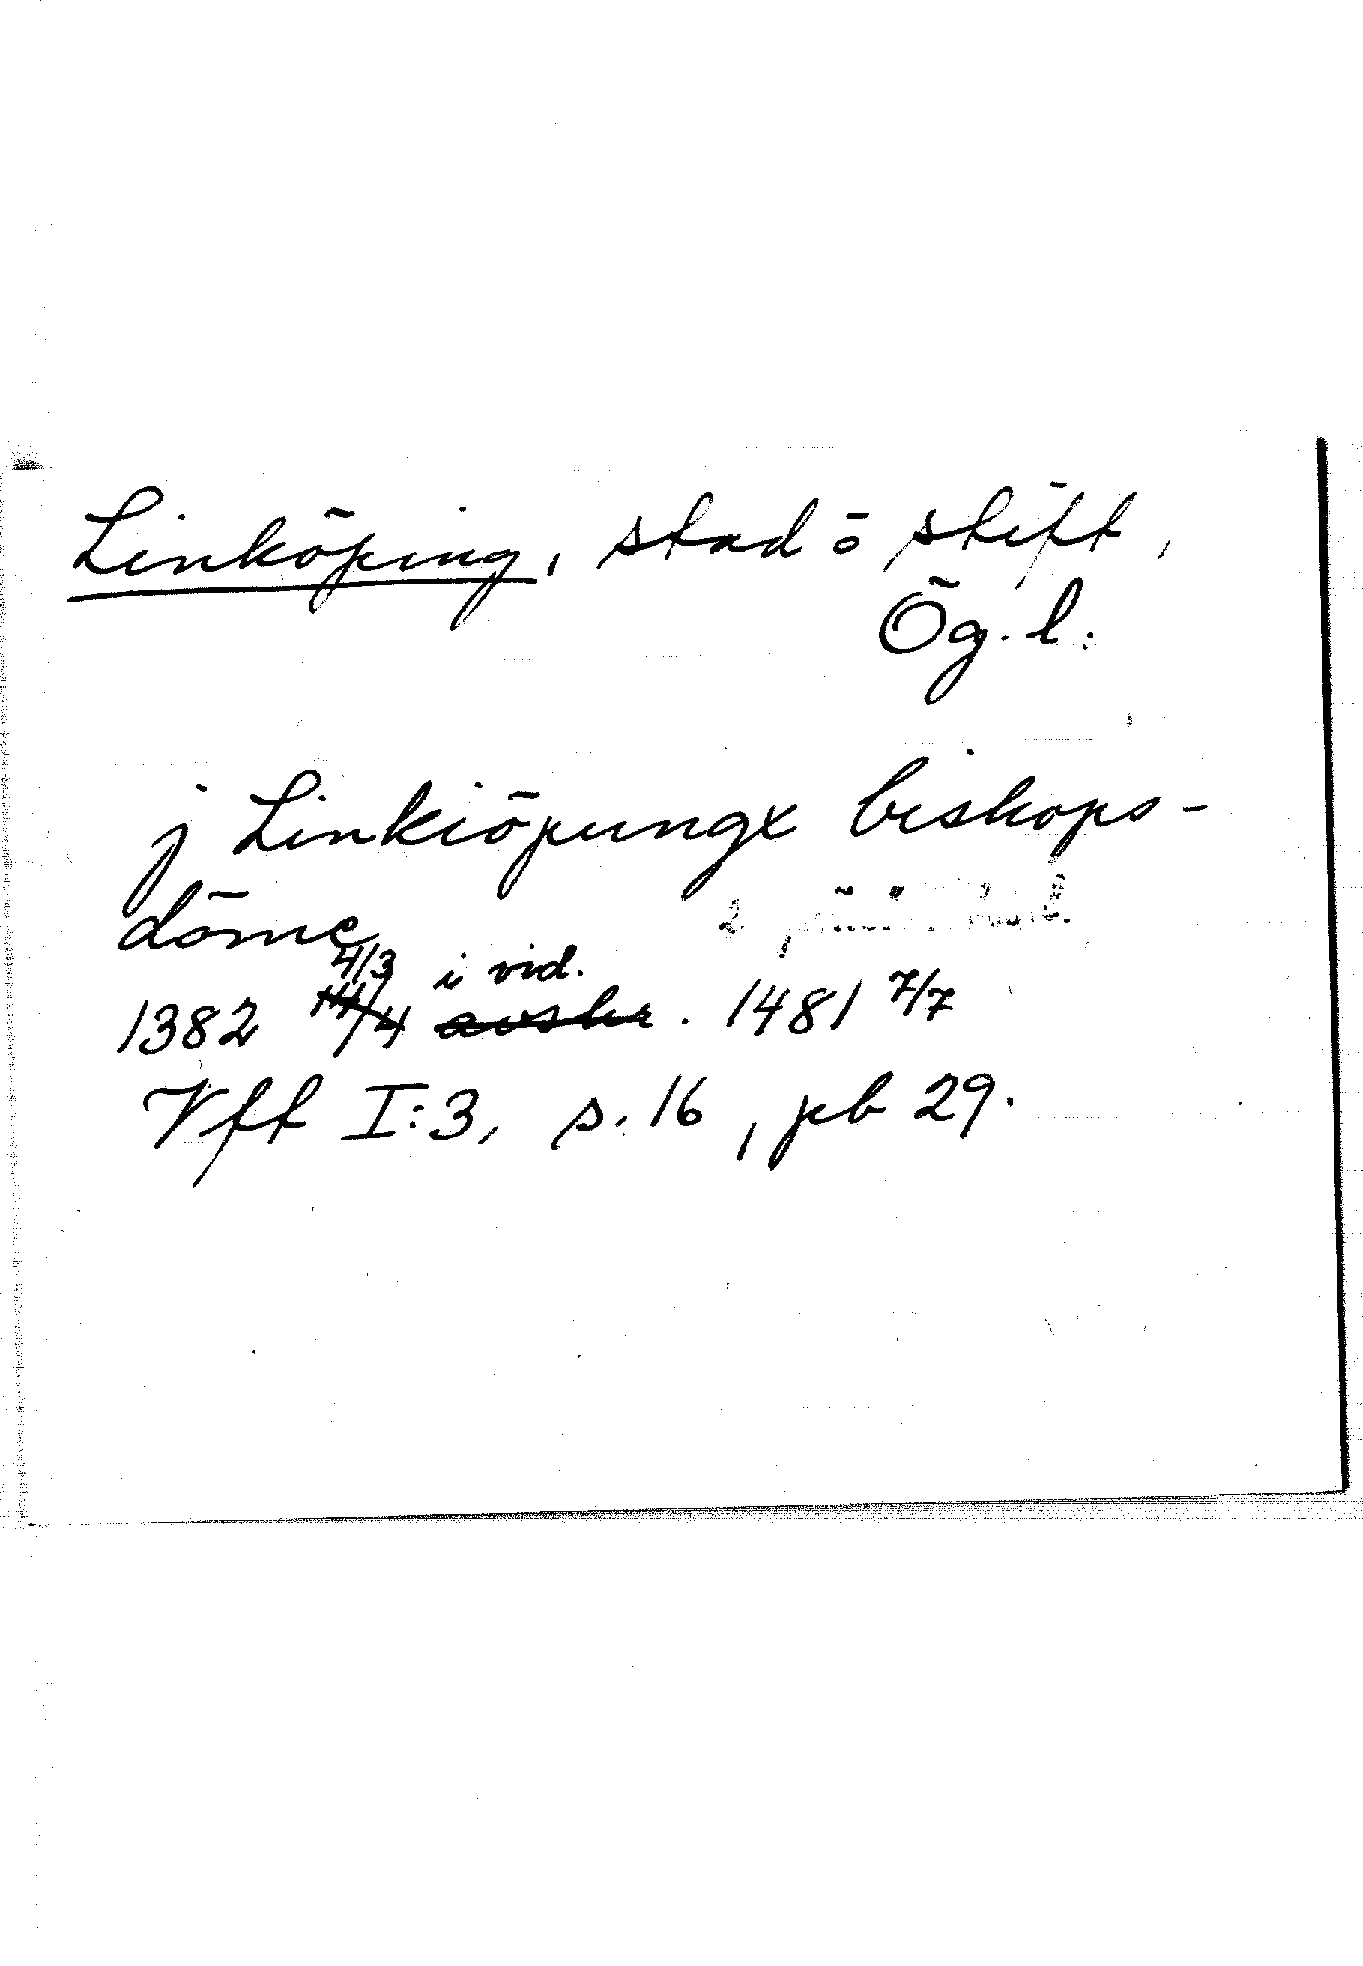 Linköping, stad o stift,
Ög. l.
j Linkiöpungx biskops-
döme
4/3 i vid.
1382 14/4 avskr. 1481 7/7
Vff I:3, s. 16, pb 29.